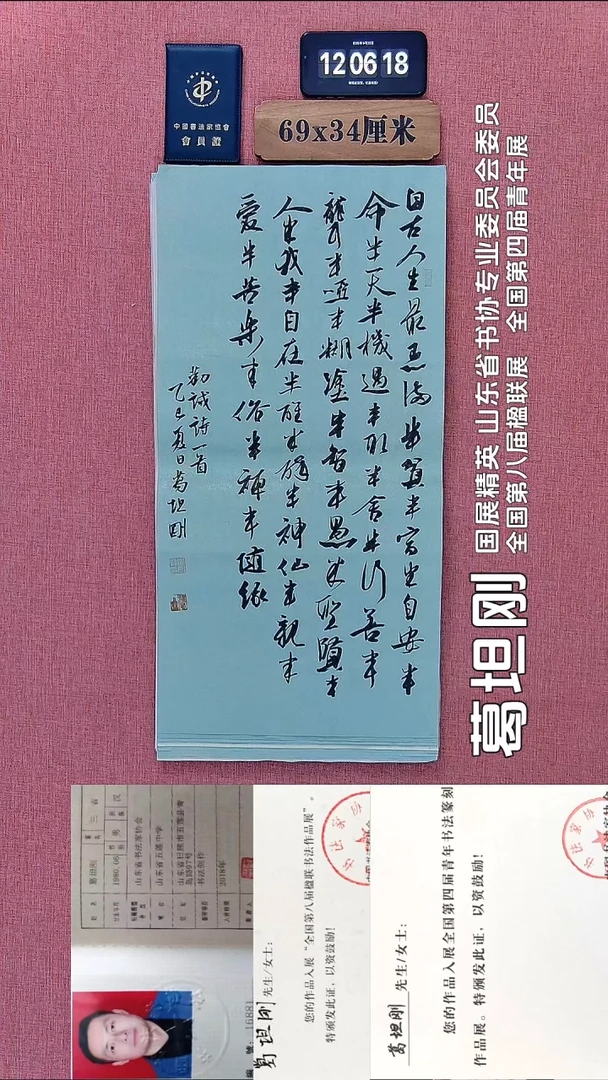 12 06 18
中國書法家協會
會員證
69x34厘米
自古人生最忌滿半貧半富半自安半
命半天半機遇半取半舍半行善半
聾半啞半糊塗半智半愚半聖賢半
人半我半自在半醒半醉半神仙半親半
愛半苦樂半俗半禪半隨緣
勸誡詩一首
乙巳夏日葛坦剛
葛坦刚
国展精英 山东省书协专业委员会委员
全国第八届楹联展 全国第四届青年展
山东省书法家协会
山东省五莲中学
书法创作
2018年
葛坦刚 先生/女士:
您的作品入展“全国第八届楹联书法作品展”。
特颁发此证，以资鼓励!
葛坦刚 先生/女士:
您的作品入展全国第四届青年书法篆刻
作品展。特颁发此证，以资鼓励!